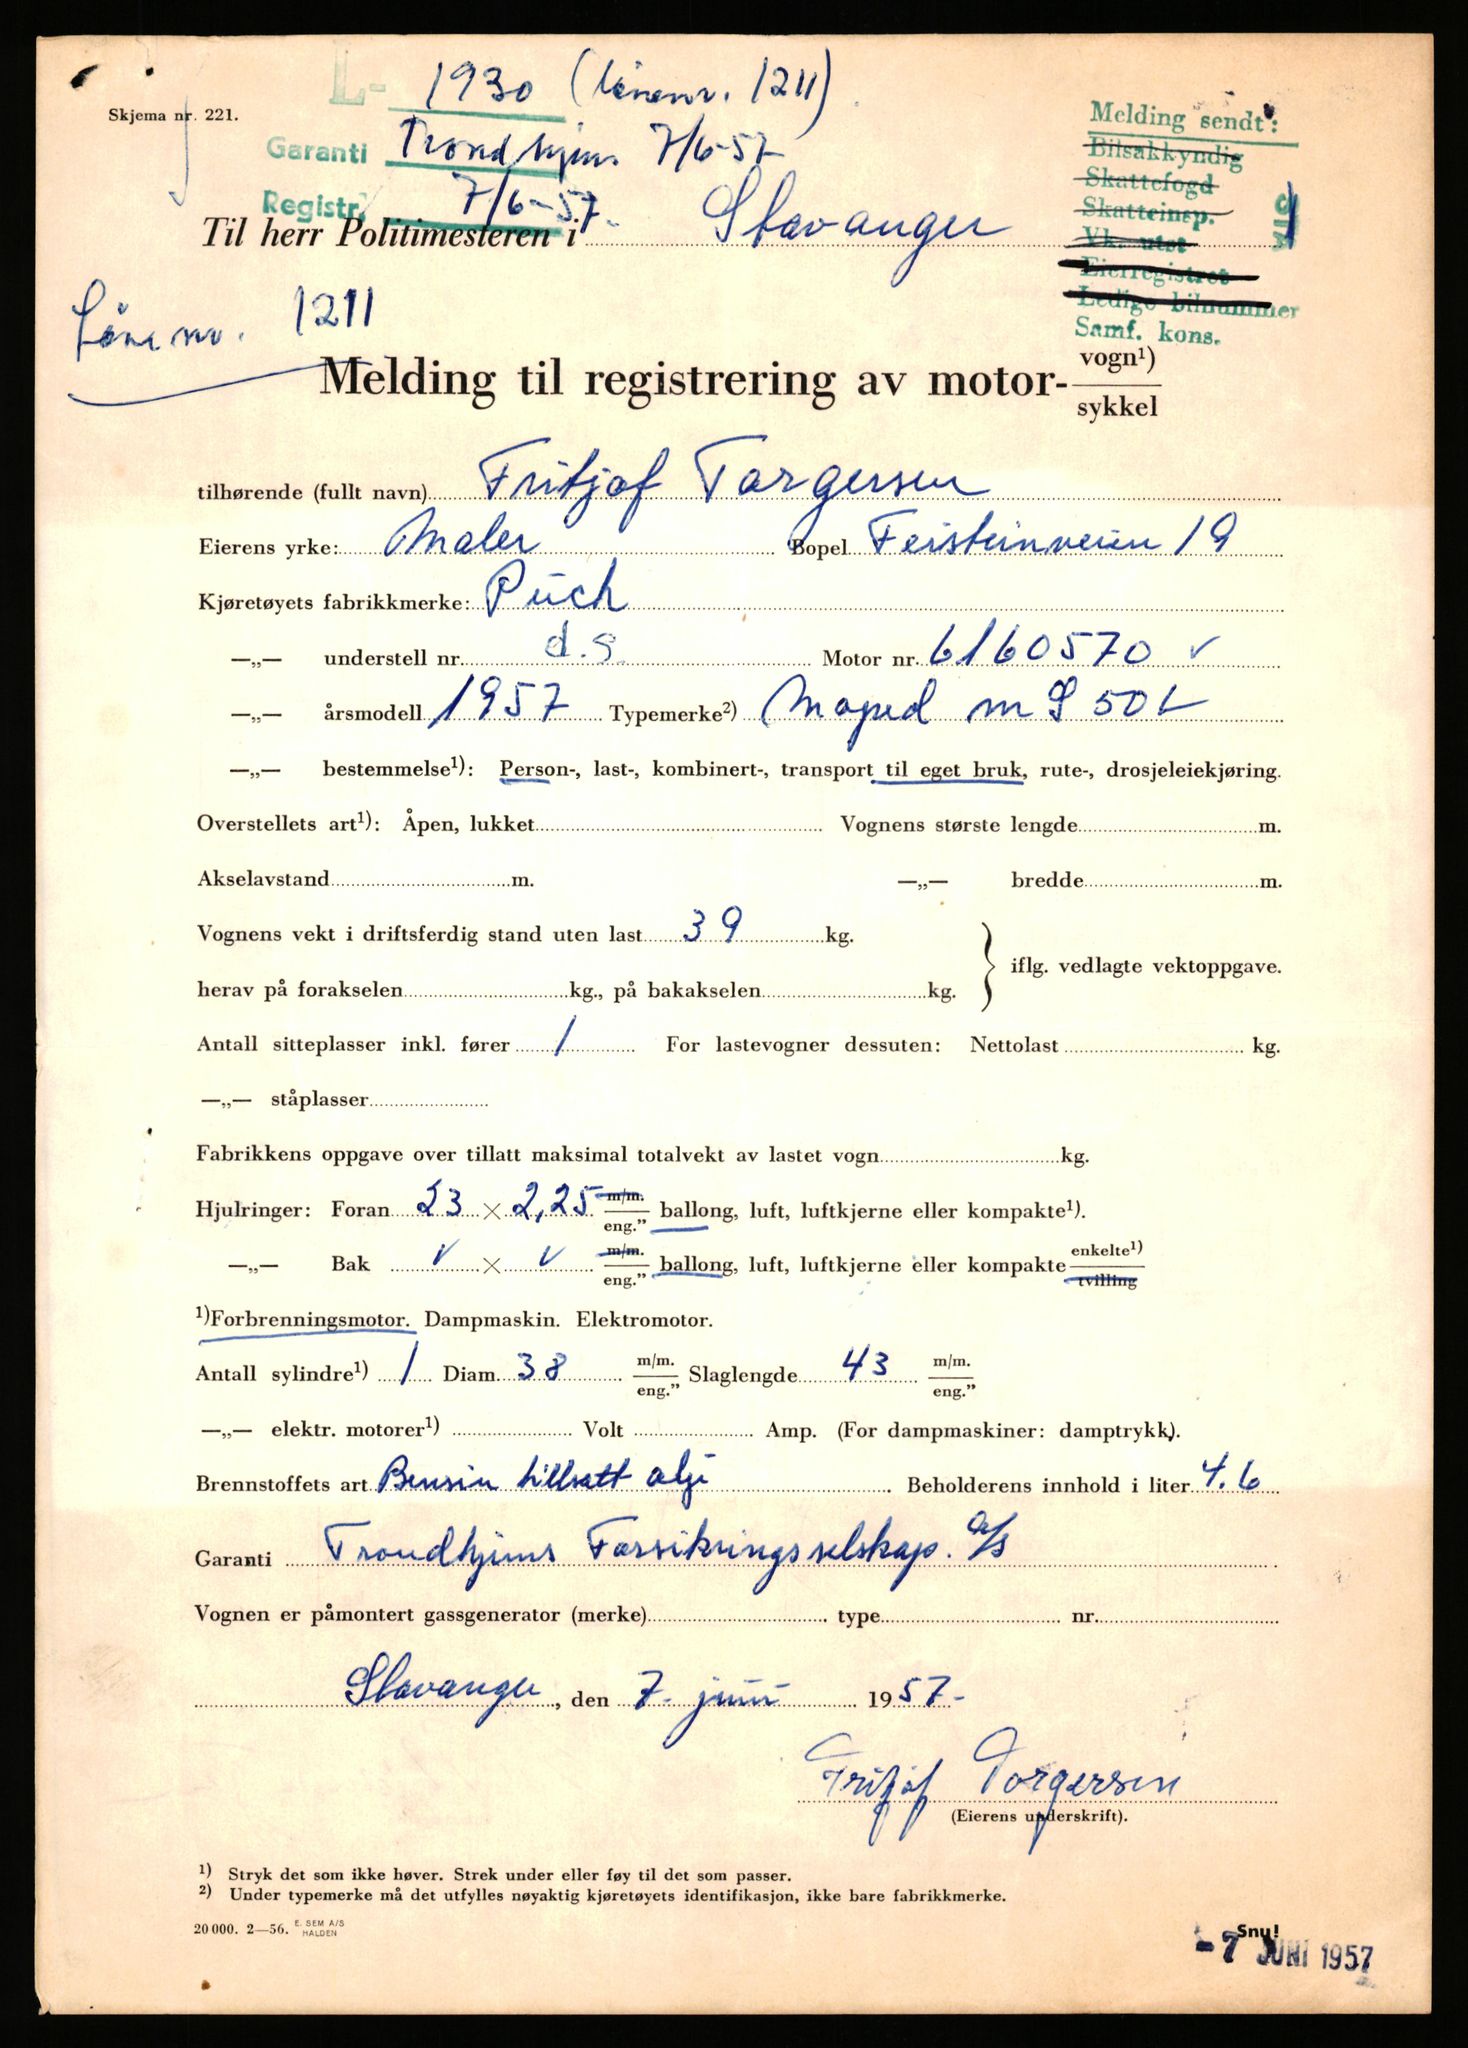 L- 1930 (Lånenr. 1211)
Skjema nr. 221.
Garanti Trondhjems 7/6-57
Registr. 7/6-57.
Melding sendt:
Bilsakkyndig
Skattefogd
Skatteinsp.
Vk. utst
Eierregistret
Ledige bilnummer
Samf. kons.
Til herr Politimesteren i Stavanger
Lånenr. 1211
Melding til registrering av motor- vogn¹)
sykkel
tilhørende (fullt navn) Fritjof Torgersen
Eierens yrke: Maler Bopel Feisteinveien 19
Kjøretøyets fabrikkmerke: Puch
—„— understell nr. d.s. Motor nr. 6160570 v
—„— årsmodell 1957 Typemerke²) Moped MS 50 L
—„— bestemmelse¹): Person-, last-, kombinert-, transport til eget bruk, rute-, drosjeleiekjøring.
Overstellets art¹): Åpen, lukket Vognens største lengde m.
Akselavstand m. —„— bredde m.
Vognens vekt i driftsferdig stand uten last 39 kg.
iflg. vedlagte vektoppgave.
herav på forakselen kg., på bakakselen kg.
Antall sitteplasser inkl. fører 1 For lastevogner dessuten: Nettolast kg.
—„— ståplasser
Fabrikkens oppgave over tillatt maksimal totalvekt av lastet vogn kg.
Hjulringer: Foran 23 × 2,25 m/m. eng." ballong, luft, luftkjerne eller kompakte¹).
—„— Bak v × v m/m. eng." ballong, luft, luftkjerne eller kompakte enkelte¹) tvilling
¹)Forbrenningsmotor. Dampmaskin. Elektromotor.
Antall sylindre¹) 1 Diam. 38 m/m. eng." Slaglengde 43 m/m. eng."
—„— elektr. motorer¹) Volt Amp. (For dampmaskiner: damptrykk).
Brennstoffets art Bensin tillsatt olje Beholderens innhold i liter 4.6
Garanti Trondhjems Forsikringsselskap. A/S
Vognen er påmontert gassgenerator (merke) type nr.
Stavanger, den 7. juni 1957-
Fritjof Torgersen
(Eierens underskrift).
¹) Stryk det som ikke høver. Strek under eller føy til det som passer.
²) Under typemerke må det utfylles nøyaktig kjøretøyets identifikasjon, ikke bare fabrikkmerke.
20 000. 2—56. E. SEM A/S HALDEN
Snu!
- 7 JUNI 1957